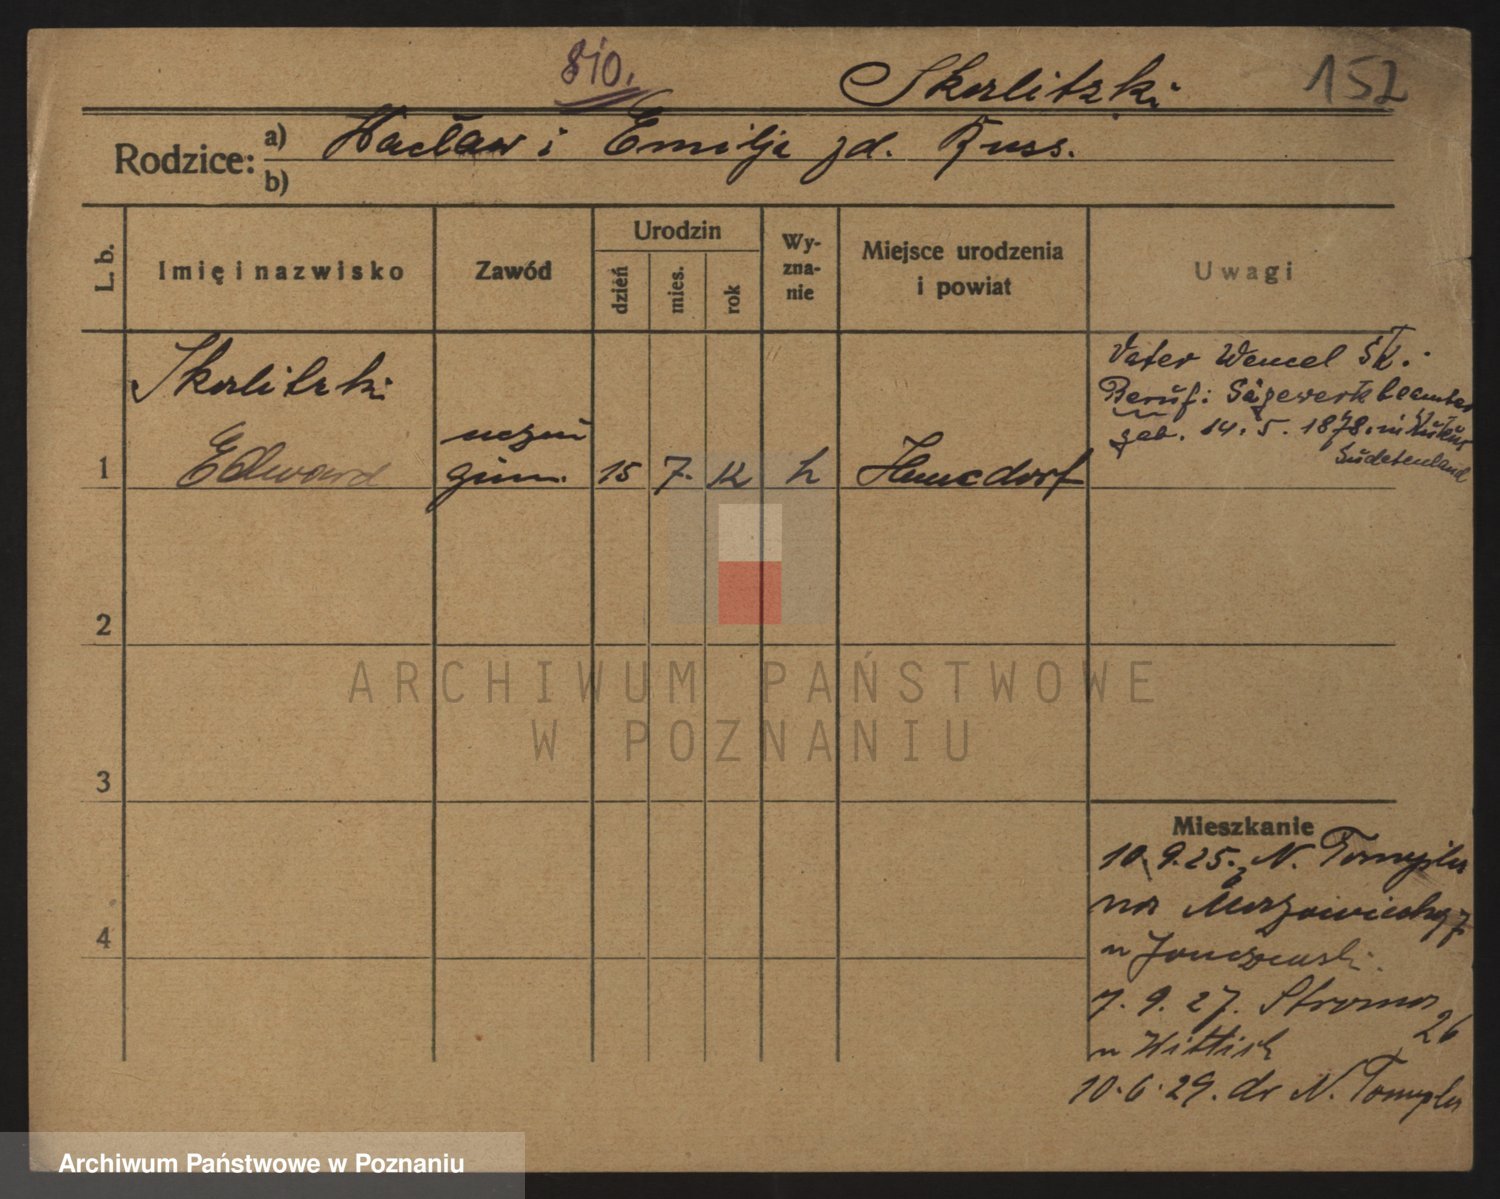 810.
Skorlitzki
152
Rodzice: a) Wacław i Emilja zd. Russ.
b)
L. b.
Imię i nazwisko
Zawód
Urodzin
dzień
mies.
rok
Wy-
zna-
nie
Miejsce urodzenia
i powiat
Uwagi
Skorlitzki
Edward
1
uczeń
gimn.
15
7.
12
k
Vater Wenzel Sk.
Beruf: Sägewerkbeamter
geb. 14. 5. 1878. in
Sudetenland
2
3
4
Mieszkanie
10.9.25. N. Tomyśla
na Mazowiecką 7
u
7. 9. 27. Stroma
26
u Wittich
10.6.29. do N. Tomyśla
ARCHIWUM PAŃSTWOWE
W POZNANIU
Archiwum Państwowe w Poznaniu